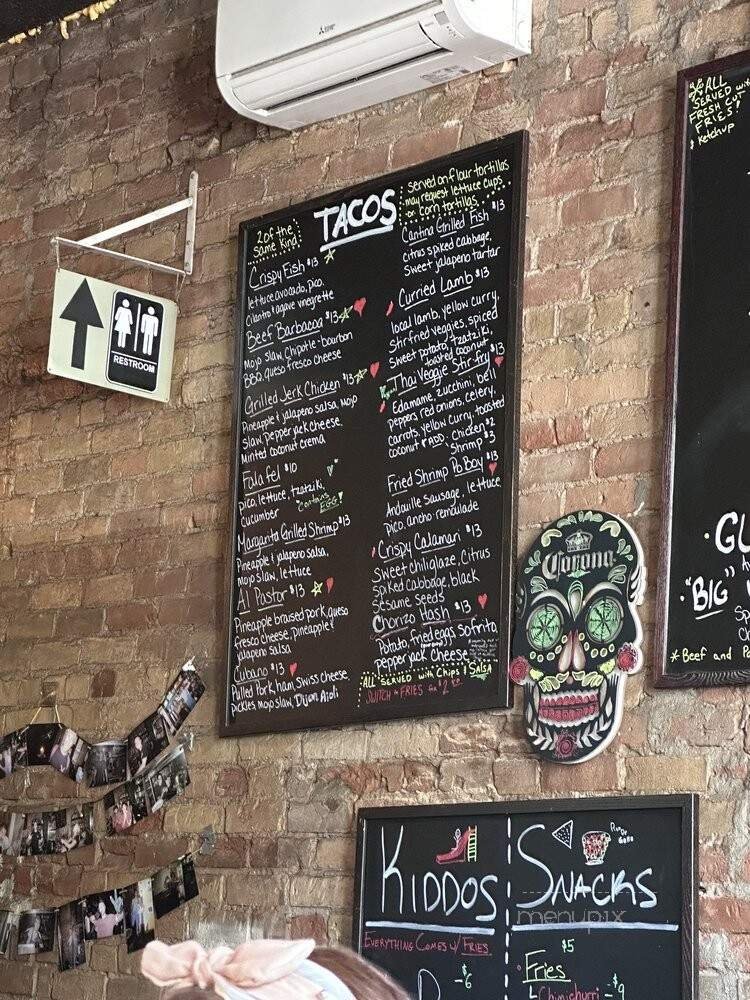 2 of the
same kind!
TACOS
served on flour tortillas
may request lettuce cups
or corn tortillas.
Crispy Fish $13
lettuce, avocado, pico,
Cilantro & agave vinegrette
Beef Barbacoa $13
Mojo slaw, Chipotle-bourbon
BBQ, queso fresco cheese
Grilled Jerk Chicken $13
Pineapple & jalapeno salsa, Mojo
Slaw, pepper jack cheese,
Minted coconut crema
Falafel $10
pico, lettuce, tzatziki,
cucumber
*contains
EGG!
Margarita Grilled Shrimp $13
Pineapple & jalapeno salsa,
mojo slaw, lettuce
Al Pastor $13
Pineapple braised pork, queso
fresco cheese, pineapple &
jalapeno salsa
Cubano $13
Pulled Pork, ham, Swiss cheese,
pickles, mojo slaw, Dijon Aioli
Cantina Grilled Fish $13
citrus spiked cabbage,
Sweet jalapeno tartar
Curried Lamb $13
local lamb, yellow curry,
Stirfried veggies, spiced
Sweet potato, tzatziki,
toasted coconut
Thai Veggie Stir-fry $13
Edamame, zucchini, bell
peppers, red onions, celery,
carrots, yellow curry, toasted
coconut *ADD: chicken $2
Shrimp $3
Fried Shrimp Po Boy $13
Andouille Sausage, lettuce
pico, ancho remoulade
Crispy Calamari $13
Sweet chili glaze, Citrus
spiked cabbage, black
Sesame seeds
Chorizo Hash $13
Potato, fried eggs, Sofrito,
pepper jack Cheese
ALL SERVED with Chips & SALSA
SWITCH to FRIES for $2
RESTROOM
ALL
SERVED with
FRESH CUT
FRIES!
& Ketchup
GU
"BIG"
*Beef and Po
Corona
KIDDOS
EVERYTHING COMES W/ FRIES
-$6
SNACKS
$5
Fries
Chimichurri -$9
menupix
MITSUBISHI